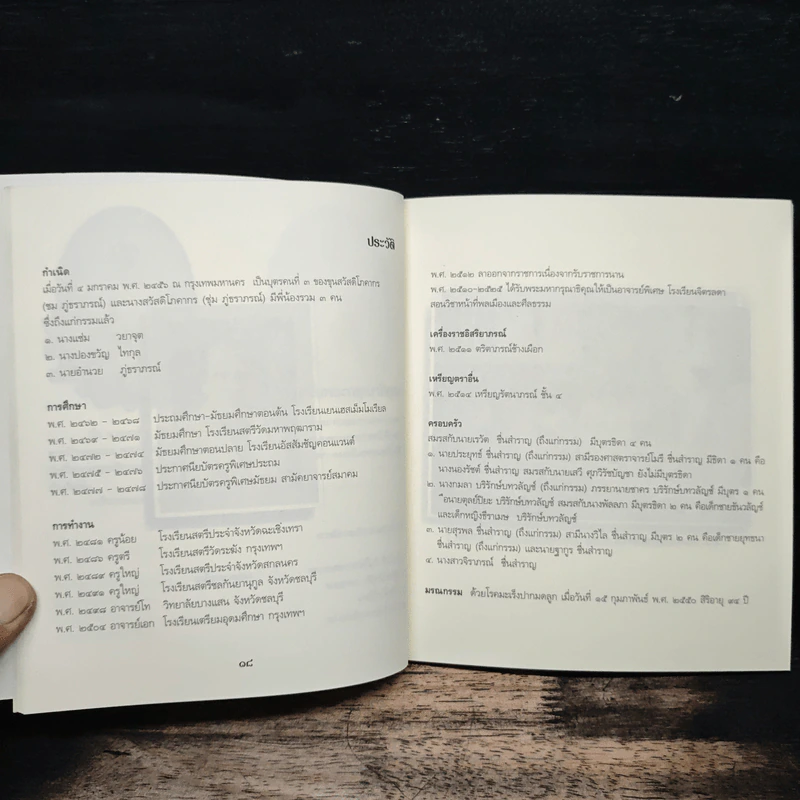 ประวัติ
กำเนิด
เมื่อวันที่ ๔ มกราคม พ.ศ. ๒๔๕๖ ณ กรุงเทพมหานคร เป็นบุตรคนที่ ๓ ของขุนสวัสดิโภคากร
(ชม ภู่ธราภรณ์) และนางสวัสดิโภคากร (ชุ่ม ภู่ธราภรณ์) มีพี่น้องรวม ๓ คน
ซึ่งถึงแก่กรรมแล้ว
๑. นางแช่ม วยาจุต
๒. นางปองขวัญ ไทกุล
๓. นายอำนวย ภู่ธราภรณ์
การศึกษา
พ.ศ. ๒๔๖๒ - ๒๔๖๘ ประถมศึกษา-มัธยมศึกษาตอนต้น โรงเรียนเยนเฮสเม็มโมเรียล
พ.ศ. ๒๔๖๙ - ๒๔๗๑ มัธยมศึกษา โรงเรียนสตรีวัดมหาพฤฒาราม
พ.ศ. ๒๔๗๒ - ๒๔๗๔ มัธยมศึกษาตอนปลาย โรงเรียนอัสสัมชัญคอนแวนต์
พ.ศ. ๒๔๗๕ - ๒๔๗๖ ประกาศนียบัตรครูพิเศษประถม
พ.ศ. ๒๔๗๗ - ๒๔๗๘ ประกาศนียบัตรครูพิเศษมัธยม สามัคยาจารย์สมาคม
การทำงาน
พ.ศ. ๒๔๘๑ ครูน้อย โรงเรียนสตรีประจำจังหวัดฉะเชิงเทรา
พ.ศ. ๒๔๘๖ ครูตรี โรงเรียนสตรีวัดระฆัง กรุงเทพฯ
พ.ศ. ๒๔๘๙ ครูใหญ่ โรงเรียนสตรีประจำจังหวัดสกลนคร
พ.ศ. ๒๔๙๑ ครูใหญ่ โรงเรียนสตรีชลกันยานุกูล จังหวัดชลบุรี
พ.ศ. ๒๔๙๘ อาจารย์โท วิทยาลัยบางแสน จังหวัดชลบุรี
พ.ศ. ๒๕๐๔ อาจารย์เอก โรงเรียนเตรียมอุดมศึกษา กรุงเทพฯ
๑๘
พ.ศ. ๒๕๑๒ ลาออกจากราชการเนื่องจากรับราชการนาน
พ.ศ. ๒๕๑๐-๒๕๒๕ ได้รับพระมหากรุณาธิคุณให้เป็นอาจารย์พิเศษ โรงเรียนจิตรลดา
สอนวิชาหน้าที่พลเมืองและศีลธรรม
เครื่องราชอิสริยาภรณ์
พ.ศ. ๒๕๑๑ ตริตาภรณ์ช้างเผือก
เหรียญตราอื่น
พ.ศ. ๒๕๑๔ เหรียญรัตนาภรณ์ ชั้น ๔
ครอบครัว
สมรสกับนายเรวัต ชื่นสำราญ (ถึงแก่กรรม) มีบุตรธิดา ๔ คน
๑. นายประยุทธ์ ชื่นสำราญ (ถึงแก่กรรม) สามีรองศาสตราจารย์โมรี ชื่นสำราญ มีธิดา ๑ คน คือ
นางนองรัตซ์ ชื่นสำราญ สมรสกับนายเสวี ศุภวิรัชบัญชา ยังไม่มีบุตรธิดา
๒. นางกมลา บริรักษ์บทวลัญช์ (ถึงแก่กรรม) ภรรยานายชาคร บริรักษ์บทวลัญช์ มีบุตร ๑ คน
ือนายตุลย์ปิยะ บริรักษ์บทวลัญช์ สมรสกับนางพัลลภา มีบุตรธิดา ๒ คน คือเด็กชายธันวลัญช์
และเด็กหญิงธีราเมษ บริรักษ์บทวลัญช์
๓. นายสุรพล ชื่นสำราญ (ถึงแก่กรรม) สามีนางวิไล ชื่นสำราญ มีบุตร ๒ คน คือเด็กชายยุทธนา
ชื่นสำราญ (ถึงแก่กรรม) และนายฐากูร ชื่นสำราญ
๔. นางสาวจิราภรณ์ ชื่นสำราญ
มรณกรรม ด้วยโรคมะเร็งปากมดลูก เมื่อวันที่ ๑๕ กุมภาพันธ์ พ.ศ. ๒๕๕๐ สิริอายุ ๙๔ ปี